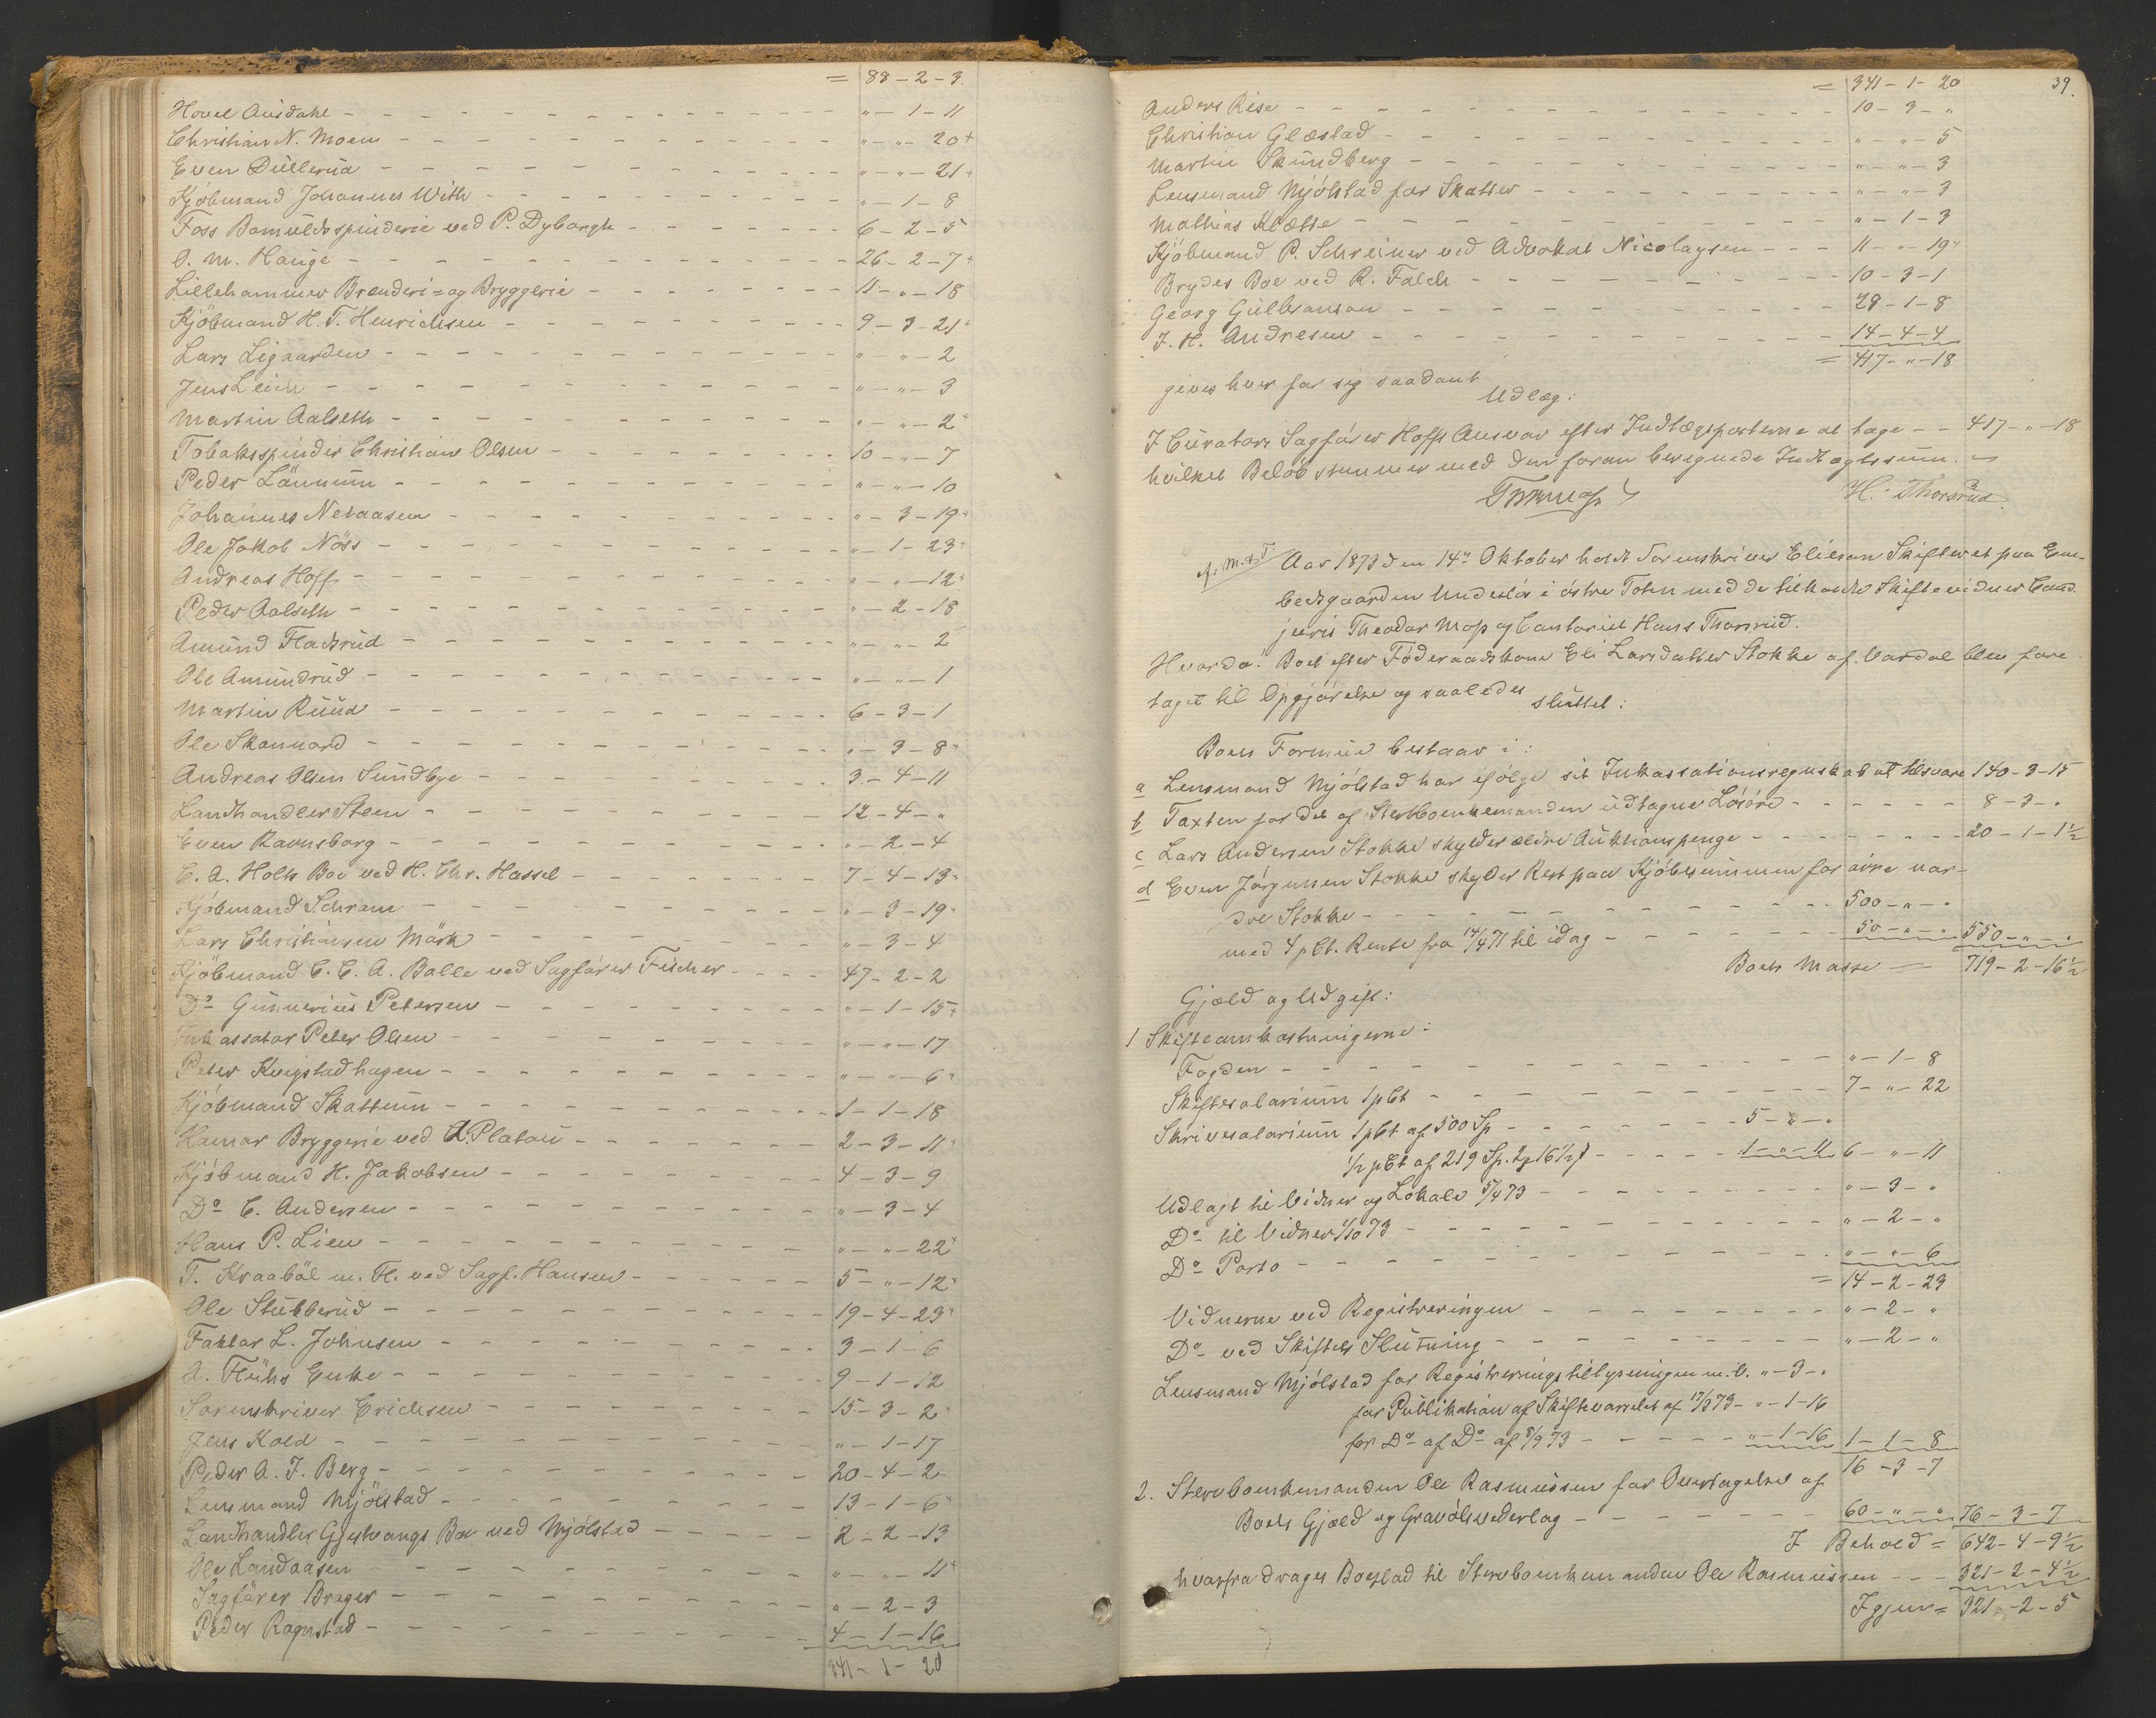 = 88 - 2 - 3.
Hovel Ausdahl - - - " - 1 - 11
Christian N. Moen - - - " - " - 20+
Even Dullerud - - - " - " - 21+
Kjøbmand Johannes With - - - " - 1 - 8
Foss Bomuldsspinderie ved P. Dyborgh - - - 6 - 2 - 5
O. M. Hauge - - - 26 - 2 - 7+
Lillehammer Brenderi= og Bryggerie - - - 11 - " - 18
Kjøbmand H. T. Henrichsen - - - 9 - 3 - 21+
Lars Ligaarden - - - " - " - 2
Jens LeiN - - - " - " - 3
Martin Aalseth - - - " - " - 2+
Tobaksspinder Christian Olsen - - - 10 - " - 7
Peder Lännum - - - " - " - 10
Johannes Neraasen - - - " - 3 - 19+
Ole Jakob Nöss - - - " - 1 - 23+
Andreas Hoff - - - " - " - 12+
Peder Aalseth - - - " - 2 - 18
Amund Fladsrud - - - " - " - 2
Ole Amundrud - - - " - " - 1
Martin Ruud - - - 6 - 3 - 1
Ole Skonnord - - - " - 3 - 8+
Andreas Olsen Sundbye - - - 3 - 4 - 11
Landhandler Steen - - - 12 - 4 - "
Even Ravnsborg - - - " - 2 - 4
E. A. Holts Boe ved H. Chr. Hassel - - - 7 - 4 - 13+
Kjøbmand Schram - - - " - 3 - 19+
Lars Christiansen Mörk - - - " - 3 - 4
Kjøbmand C. C. A. Balle ved Sagfører Fischer - - - 47 - 2 - 2
Do Gunnerius Petersen - - - " - 1 - 15+
Inkassator Peter Olsen - - - " - " - 17
Peter Kvigstadhagen - - - " - " - 6+
Kjøbmand Skattum - - - 1 - 1 - 18
Hamar Bryggerie ved A. Platou - - - 2 - 3 - 11+
Kjøbmand H. Jakobsen - - - 4 - 3 - 9
Do C. Andersen - - - " - 3 - 4
Hans P. Lien - - - " - " - 22+
T. Kraaböl m. Fl. ved Sagf. Hansen - - - 5 - " - 12+
Ole Stubberud - - - 19 - 4 - 23+
Faktor L. Johnsen - - - 3 - 1 - 6
A. Flühs Enke - - - 9 - 1 - 12
Sorenskriver Erichsen - - - 15 - 3 - 2+
Jens Kold - - - " - 1 - 17
Peder A. J. Berg - - - 20 - 4 - 2
Lensmand Mjölstad - - - 13 - 1 - 6+
Landhandler Gjestvangs Boe ved Mjölstad - - - 2 - 2 - 13
Ole Landaasen - - - " - " - 11+
Sagfører Brager - - - " - 2 - 3
Peder Rognstad - - - 4 - 1 - 16
341 - 1 - 20
39.
= 341 - 1 - 20
Anders Rise - - - 10 - 3 - "
Christian Glæstad - - - " - " - 5
Martin Skundberg - - - " - " - 3
Lensmand Mjölstad for Skatter - - - " - " - 3
Mathias Klætte - - - " - 1 - 3
Kjöbmand P. Schreiner ved Advokat Nicolaysen - - - 11 - " - 19+
Brydes Boe ved R. Falch - - - 10 - 3 - 1
Georg Gulbranson - - - 28 - 1 - 8
J. H. Andresen - - - 14 - 4 - 4
= 417 - " - 18
gives hver for sig saadant
Udlæg:
I Curators Sagfører Hoffs Ansvar efter Indtægsposterne at tage - - 417 - " - 18
hvilket Beløb stemmer med den foran beregnede Indtægtssum. -
H. Thorsrud.
Aar 1873 den 14de Oktober holdt Sorenskriver Elieson Skifteret paa Em-
bedsgaarden Undeslös i östre Toten med de tilkaldte Skiftevidner Cand.
juris Theodor Moss og Contorist Hans Thorsrud.
Hvorda: Boet efter Föderaadskone Eli Larsdatter Stokke af Vardal blev fore
taget til Opgjørelse og saaledes sluttet:
Boets Formue bestaar i:
a Lensmand Mjölstad har ifölge sit Inkassationsregnskab at tilsvare 140 - 3 - 15
b Taxten for del af Sterboenkemanden udtagne Lösöre - - - 8 - 3 - "
c Lars Andersen Stokke skylder ældre Auktionspenge - - - 20 - 1 - 1½
d Even Jörgensen Stokke skylder Rest paa Kjöbesummen for övre nor-
dre Stokke - - - 500 - " - "
med 4 pCt. Rente fra 14/4 71 til idag - - - 50 - " - " 550 - " - "
Boets Masse = 719 - 2 - 16½
Gjæld og Udgift:
1 Skifteomkostningerne:
Fogden - - - " - 1 - 8
Skiftesalarium 1 pCt - - - 7 - " - 22
Skriversalarium 1 pCt af 500 Sp - - - 5 - " - "
½ pCt af 219 Sp. 2 ƶ 16½ ß - - - 1 - " - 11 6 - " - 11
Udlagt til Vidner og Lokale 5/4 73 - - - " - 3 - "
Do til Vidner 4/10 73 - - - " - 2 - "
Do Porto - - - " - " - 6
= 14 - 2 - 23
Vidnerne ved Registreringen - - - " - 2 - "
Do ved Skiftets Slutning - - - " - 2 - "
Lensmand Mjölstad for Registreringstillysningen m. V. " - 3 - "
for Publikation af Skiftevarselet af 17/3 73 - " - 1 - 16
for Do af Do af 8/9 73 - - - " - 1 - 16 1 - 1 - 8
16 - 3 - 7
2. Stervboenkemanden Ole Rasmussen for Overtagelse af
Boets Gjæld og Gravölsvederlag - - - 60 - " - " 76 - 3 - 7
I Behold = 642 - 4 - 9½
hvorfra drages Boslod til Stervboenkemanden Ole Rasmussen - - - 321 - 2 - 4½
Igjen = 321 - 2 - 5